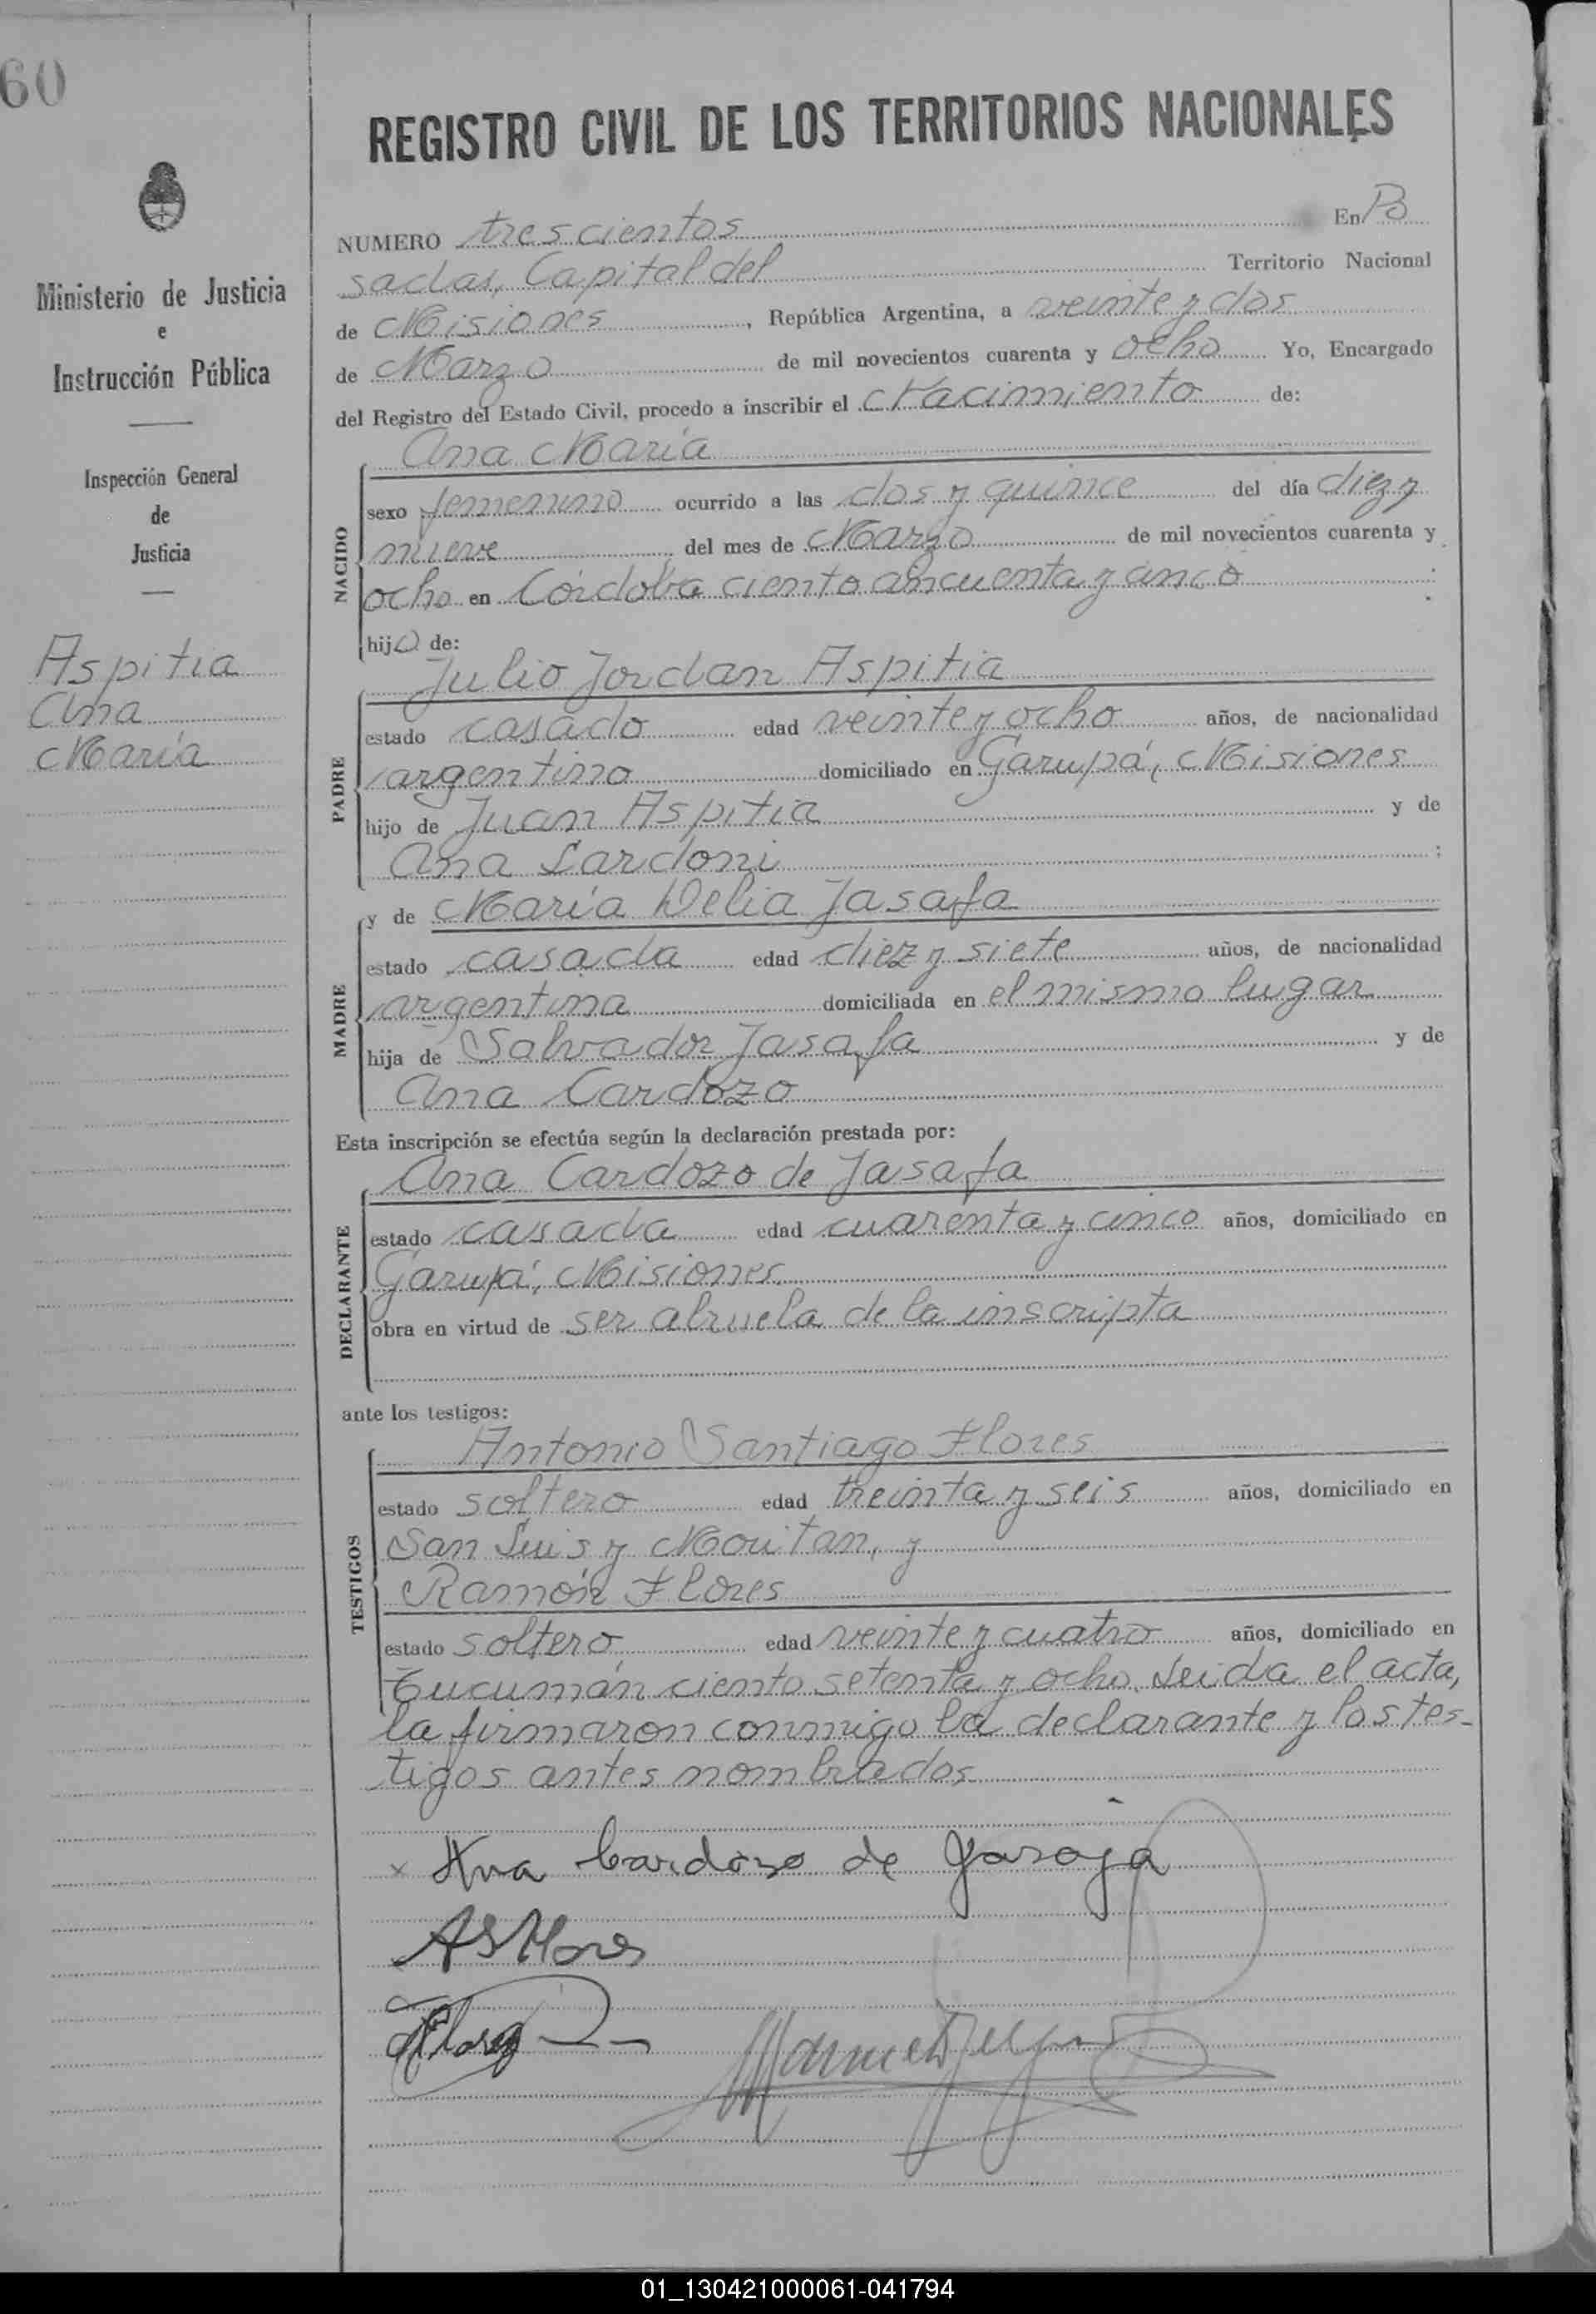 60
REGISTRO CIVIL DE LOS TERRITORIOS NACIONALES
Ministerio de Justicia
e
Instrucción Pública
Inspección General
de
Justicia
Aspitia
Ana
María
NUMERO trescientos En Po
sadas, Capital del Territorio Nacional
de Misiones, República Argentina, a veinte y dos
de Marzo de mil novecientos cuarenta y ocho Yo, Encargado
del Registro del Estado Civil, procedo a inscribir el Nacimiento de:
Ana María
NACIDO
sexo femenino ocurrido a las dos y quince del día diez y
nueve del mes de Marzo de mil novecientos cuarenta y
ocho en Córdoba ciento cincuenta y cinco
hija de:
Julio Jordan Aspitia
PADRE
estado casado edad veinte y ocho años, de nacionalidad
argentino domiciliado en Garupá, Misiones
hijo de Juan Aspitia y de
Ana Lardoni ;
MADRE
y de María Delia Jasafa
estado casada edad diez y siete años, de nacionalidad
argentina domiciliada en el mismo lugar
hija de Salvador Jasafa y de
Ana Cardozo
Esta inscripción se efectúa según la declaración prestada por:
Ana Cardozo de Jasafa
DECLARANTE
estado casada edad cuarenta y cinco años, domiciliado en
Garupá, Misiones
obra en virtud de ser abuela de la inscripta
ante los testigos:
Antonio Santiago Flores
TESTIGOS
estado soltero edad treinta y seis años, domiciliado en
San Luis y Moritan, y
Ramón Flores
estado soltero edad veinte y cuatro años, domiciliado en
Tucumán ciento setenta y ocho. Leida el acta,
la firmaron conmigo la declarante y los tes-
tigos antes nombrados
x Ana Cardozo de Jasafa
AS Flores
Flores
01_130421000061-041794